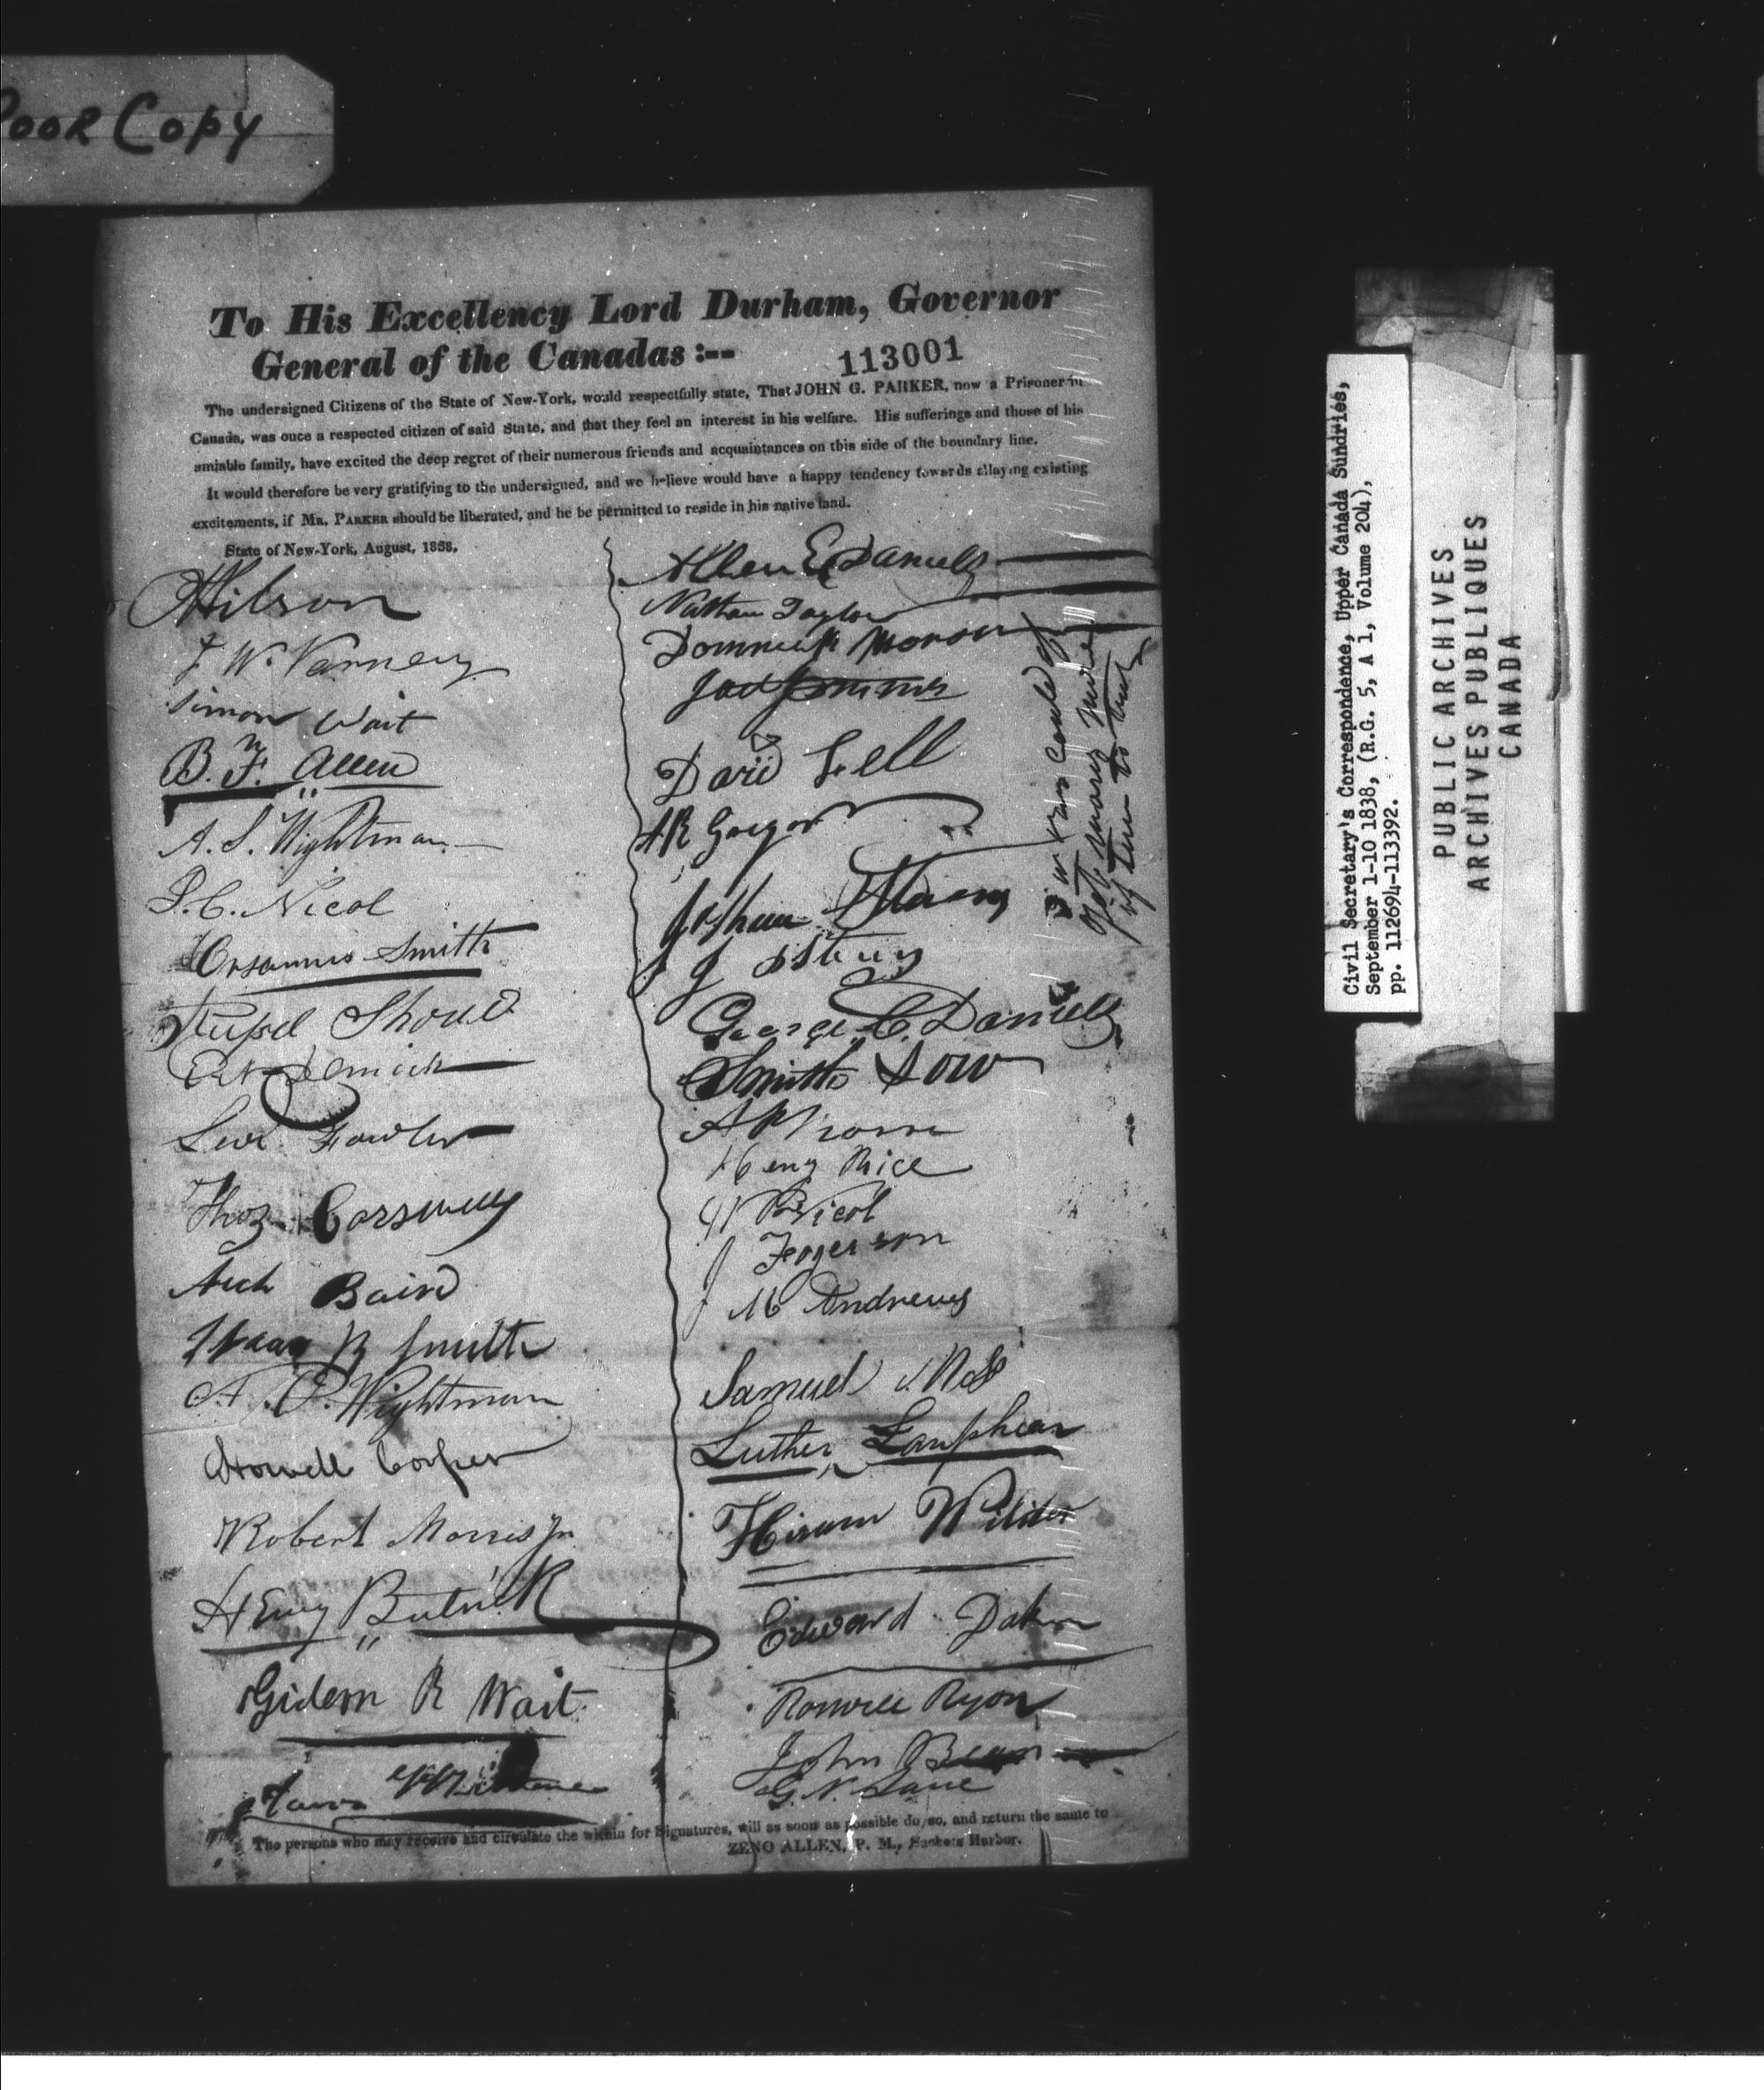 Poor Copy
To His Excellency Lord Durham, Governor
General of the Canadas :--
113001
The undersigned Citizens of the State of New-York, would respectfully state, That JOHN G. PARKER, now a Prisoner in
Canada, was once a respected citizen of said State, and that they feel an interest in his welfare. His sufferings and those of his
amiable family, have excited the deep regret of their numerous friends and acquaintances on this side of the boundary line.
It would therefore be very gratifying to the undersigned, and we believe would have a happy tendency towards allaying existing
excitements, if MR. PARKER should be liberated, and he be permitted to reside in his native land.
State of New-York, August, 1838.
Wilson
Varney
Simon Wait
B. F. Allen
A. S. Wightman
P. C. Nicol
Orsamus Smith
Levi Fowler
Thos Carswell
Arch Baird
Isaac R Smith
A. P. Wightman
Howell Cooper
Robert Morris Jr
Henry Butrick
Gideon R Wait
Allen E Daniels
Nathan Taylor
Dominick
David
Joshua
George C. Daniels
Smith Dow
Henry Rice
Nicol
J Fergerson
J M Andrews
Samuel
Luther Lanphear
Hiram Wilder
Edward
Roswell Ryon
John
G. N. Lane
The persons who may receive and circulate the within for Signatures, will as soon as possible do so, and return the same to
ZENO ALLEN, P. M., Sackets Harbor.
Civil Secretary's Correspondence, Upper Canada Sundries,
September 1-10 1838, (R.G. 5, A 1, Volume 204),
pp. 112694-113392.
PUBLIC ARCHIVES
ARCHIVES PUBLIQUES
CANADA